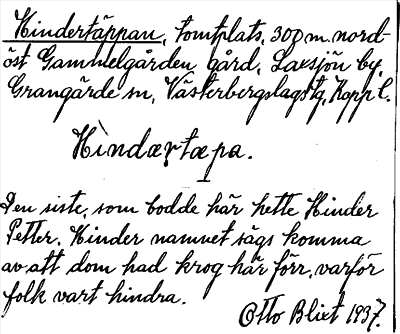 Hindertäppan, tomtplats, 300 m. nord-
öst Gammelgården gård, Laxsjön by,
Grangärde sn, Västerbergslags tg, Kopp l.
Hìndærtæpa.
Den siste, som bodde här hette Hinder
Petter. Hinder namnet sägs komma
av att dom had krog här förr, varför
folk vart hindra.
Otto Blixt 1937.